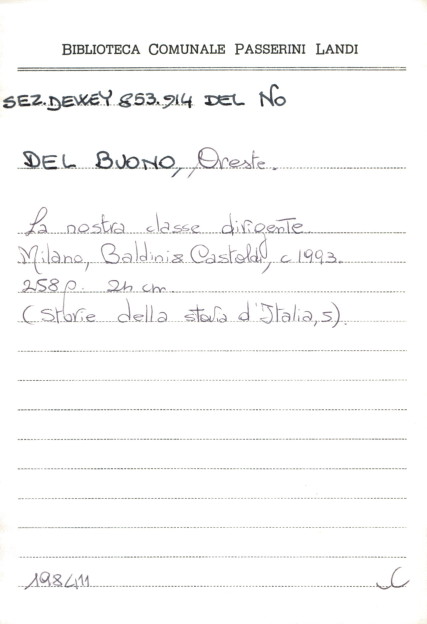 BIBLIOTECA COMUNALE PASSERINI LANDI
SEZ. DEWEY 853.914 DEL NO
DEL BUONO, Oreste.
La nostra classe dirigente.
Milano, Baldini & Castoldi, c1993.
258 p. 24 cm.
(Storie della storia d'Italia, 5).
198411